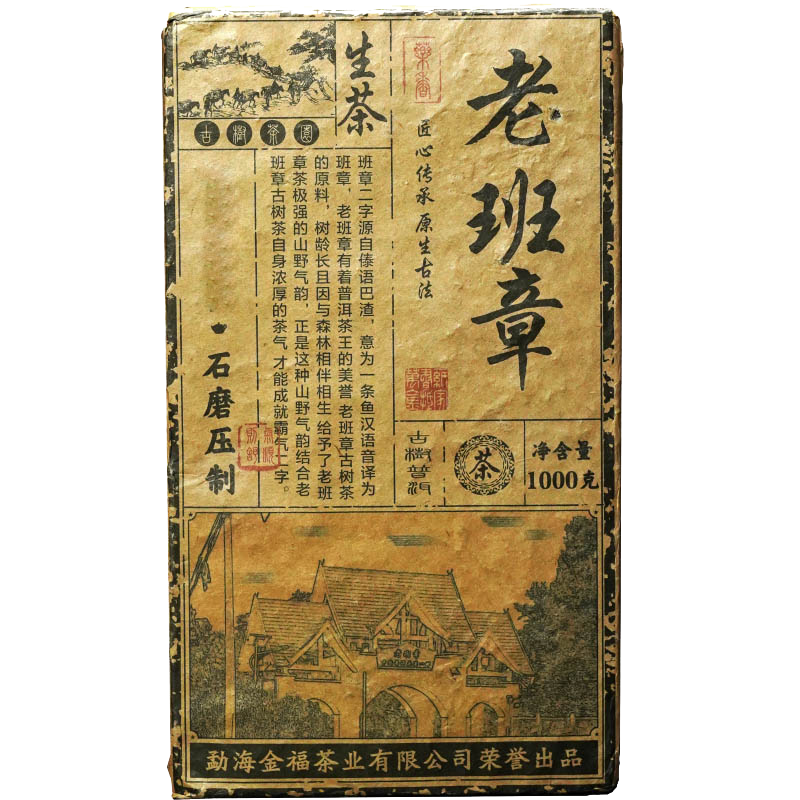 老班章
匠心传承原生古法
生茶
古樹茶園
班章二字源自傣语巴渣，意为一条鱼汉语音译为
班章，老班章有着普洱茶王的美誉 老班章古树茶
的原料，树龄长且因与森林相伴相生 给予了老班
章茶极强的山野气韵，正是这种山野气韵结合老
班章古树茶自身浓厚的茶气 才能成就霸气二字。
石磨压制
古樹普洱
茶
净含量
1000克
老班章
勐海金福茶业有限公司荣誉出品